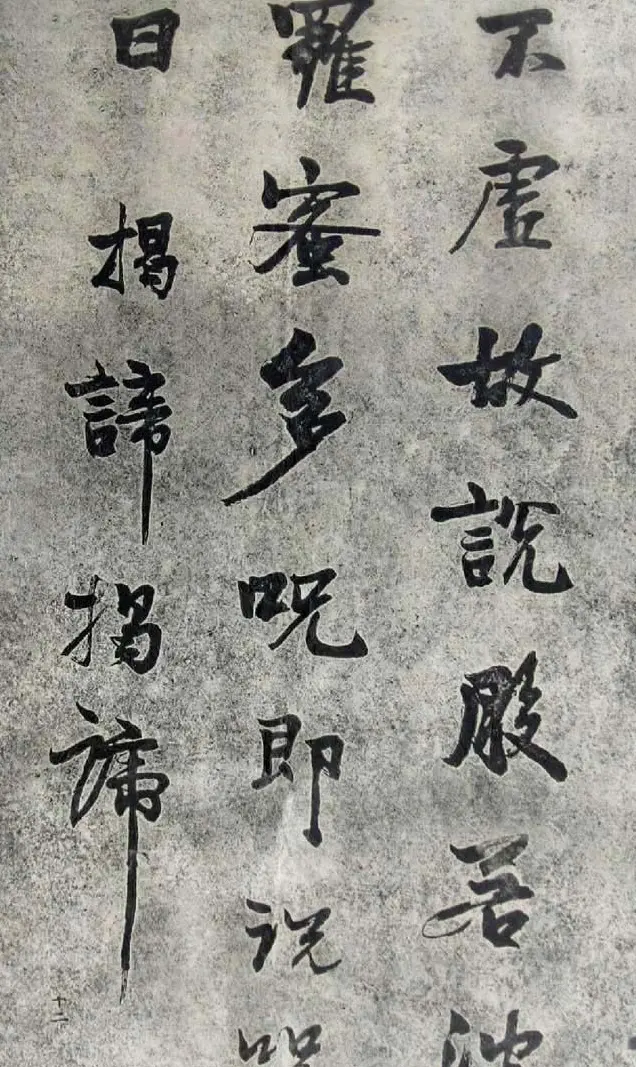 不虛故說般若波
羅蜜多呪即說呪
曰揭諦揭諦
十二